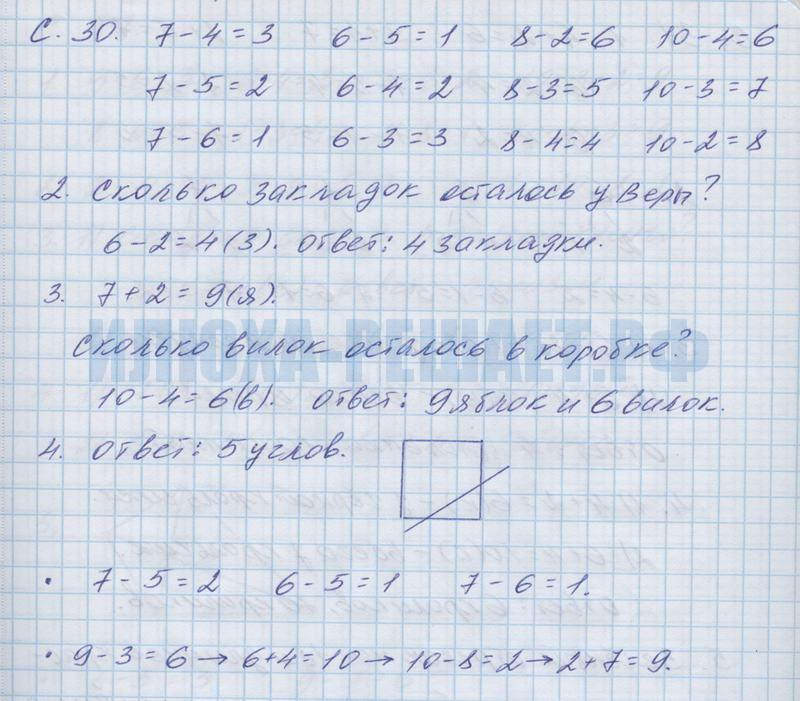 С. 30. 7-4=3 6-5=1 8-2=6 10-4=6
7-5=2 6-4=2 8-3=5 10-3=7
7-6=1 6-3=3 8-4=4 10-2=8
2. Сколько закладок осталось у Веры?
6-2=4(З). Ответ: 4 закладки.
3. 7+2=9(я).
ИЛЮХА РЕШАЕТ.РФ
Сколько вилок осталось в коробке?
10-4=6(в). Ответ: 9 яблок и 6 вилок.
4. Ответ: 5 углов.
• 7-5=2 6-5=1 7-6=1.
• 9-3=6→6+4=10→10-8=2→2+7=9.